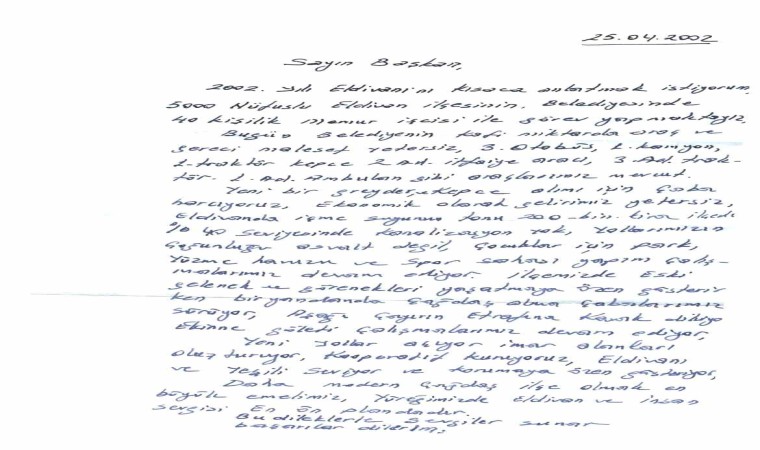 25.04.2002
Sayın Başkan,
2002. Yılı Eldivanını kısaca anlatmak istiyorum
5000 Nüfuslu Eldivan ilçesinin, Belediyesinde
40 kişilik memur işcisi ile görev yapmaktayız.
Bugün Belediyenin kafi miktarda araç ve
gereci malesef yetersiz, 3. Otobüs, 1. kamyon,
1-traktör kepçe 2 Ad. itfaiye aracı, 3. Ad. trak-
tör. 1. Ad. Ambulan gibi araçlarımız mevcut.
Yeni bir greyder, kepçe alımı için çaba
harcıyoruz, Ekonomik olarak gelirimiz yetersiz,
Eldivanda içme suyunun tonu 200-bin. lira ilçede
% 40 seviyesinde kanalizasyon yok, Yollarımızın
Çoğunluğu asvalt değil, çocuklar için park,
Yüzme havuzu ve Spor sahası yapım çalış-
malarımız devam ediyor. ilçemizde Eski
gelenek ve görenekleri yaşatmaya özen gösterir
ken bir yandanda çağdaş olma çabalarımız
sürüyor, Aşağı çayırın Etrafına kavak dikiyo
Ekinne göleti çalışmalarımız devam ediyor,
Yeni yollar açıyor imar alanları
oluşturuyor, kooperatif kuruyoruz, Eldivanı
ve Yeşili seviyor ve korumaya özen gösteriyor,
Daha modern çağdaş ilçe olmak en
büyük emelimiz, Yüreğimizde Eldivan ve insan
sevgisi En ön plandadır.
Bu dileklerle sevgiler sunar
başarılar dilerim,